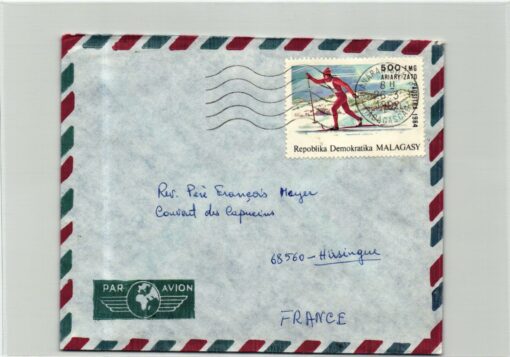 500 FMG
ARIARY ZATO
PAOSITRA 1984
6H
MADAGASCAR
Repoblika Demokratika MALAGASY
Rev. Père François Mayer
Couvent des Capucins
68560 - Hirsingue
PAR AVION
FRANCE